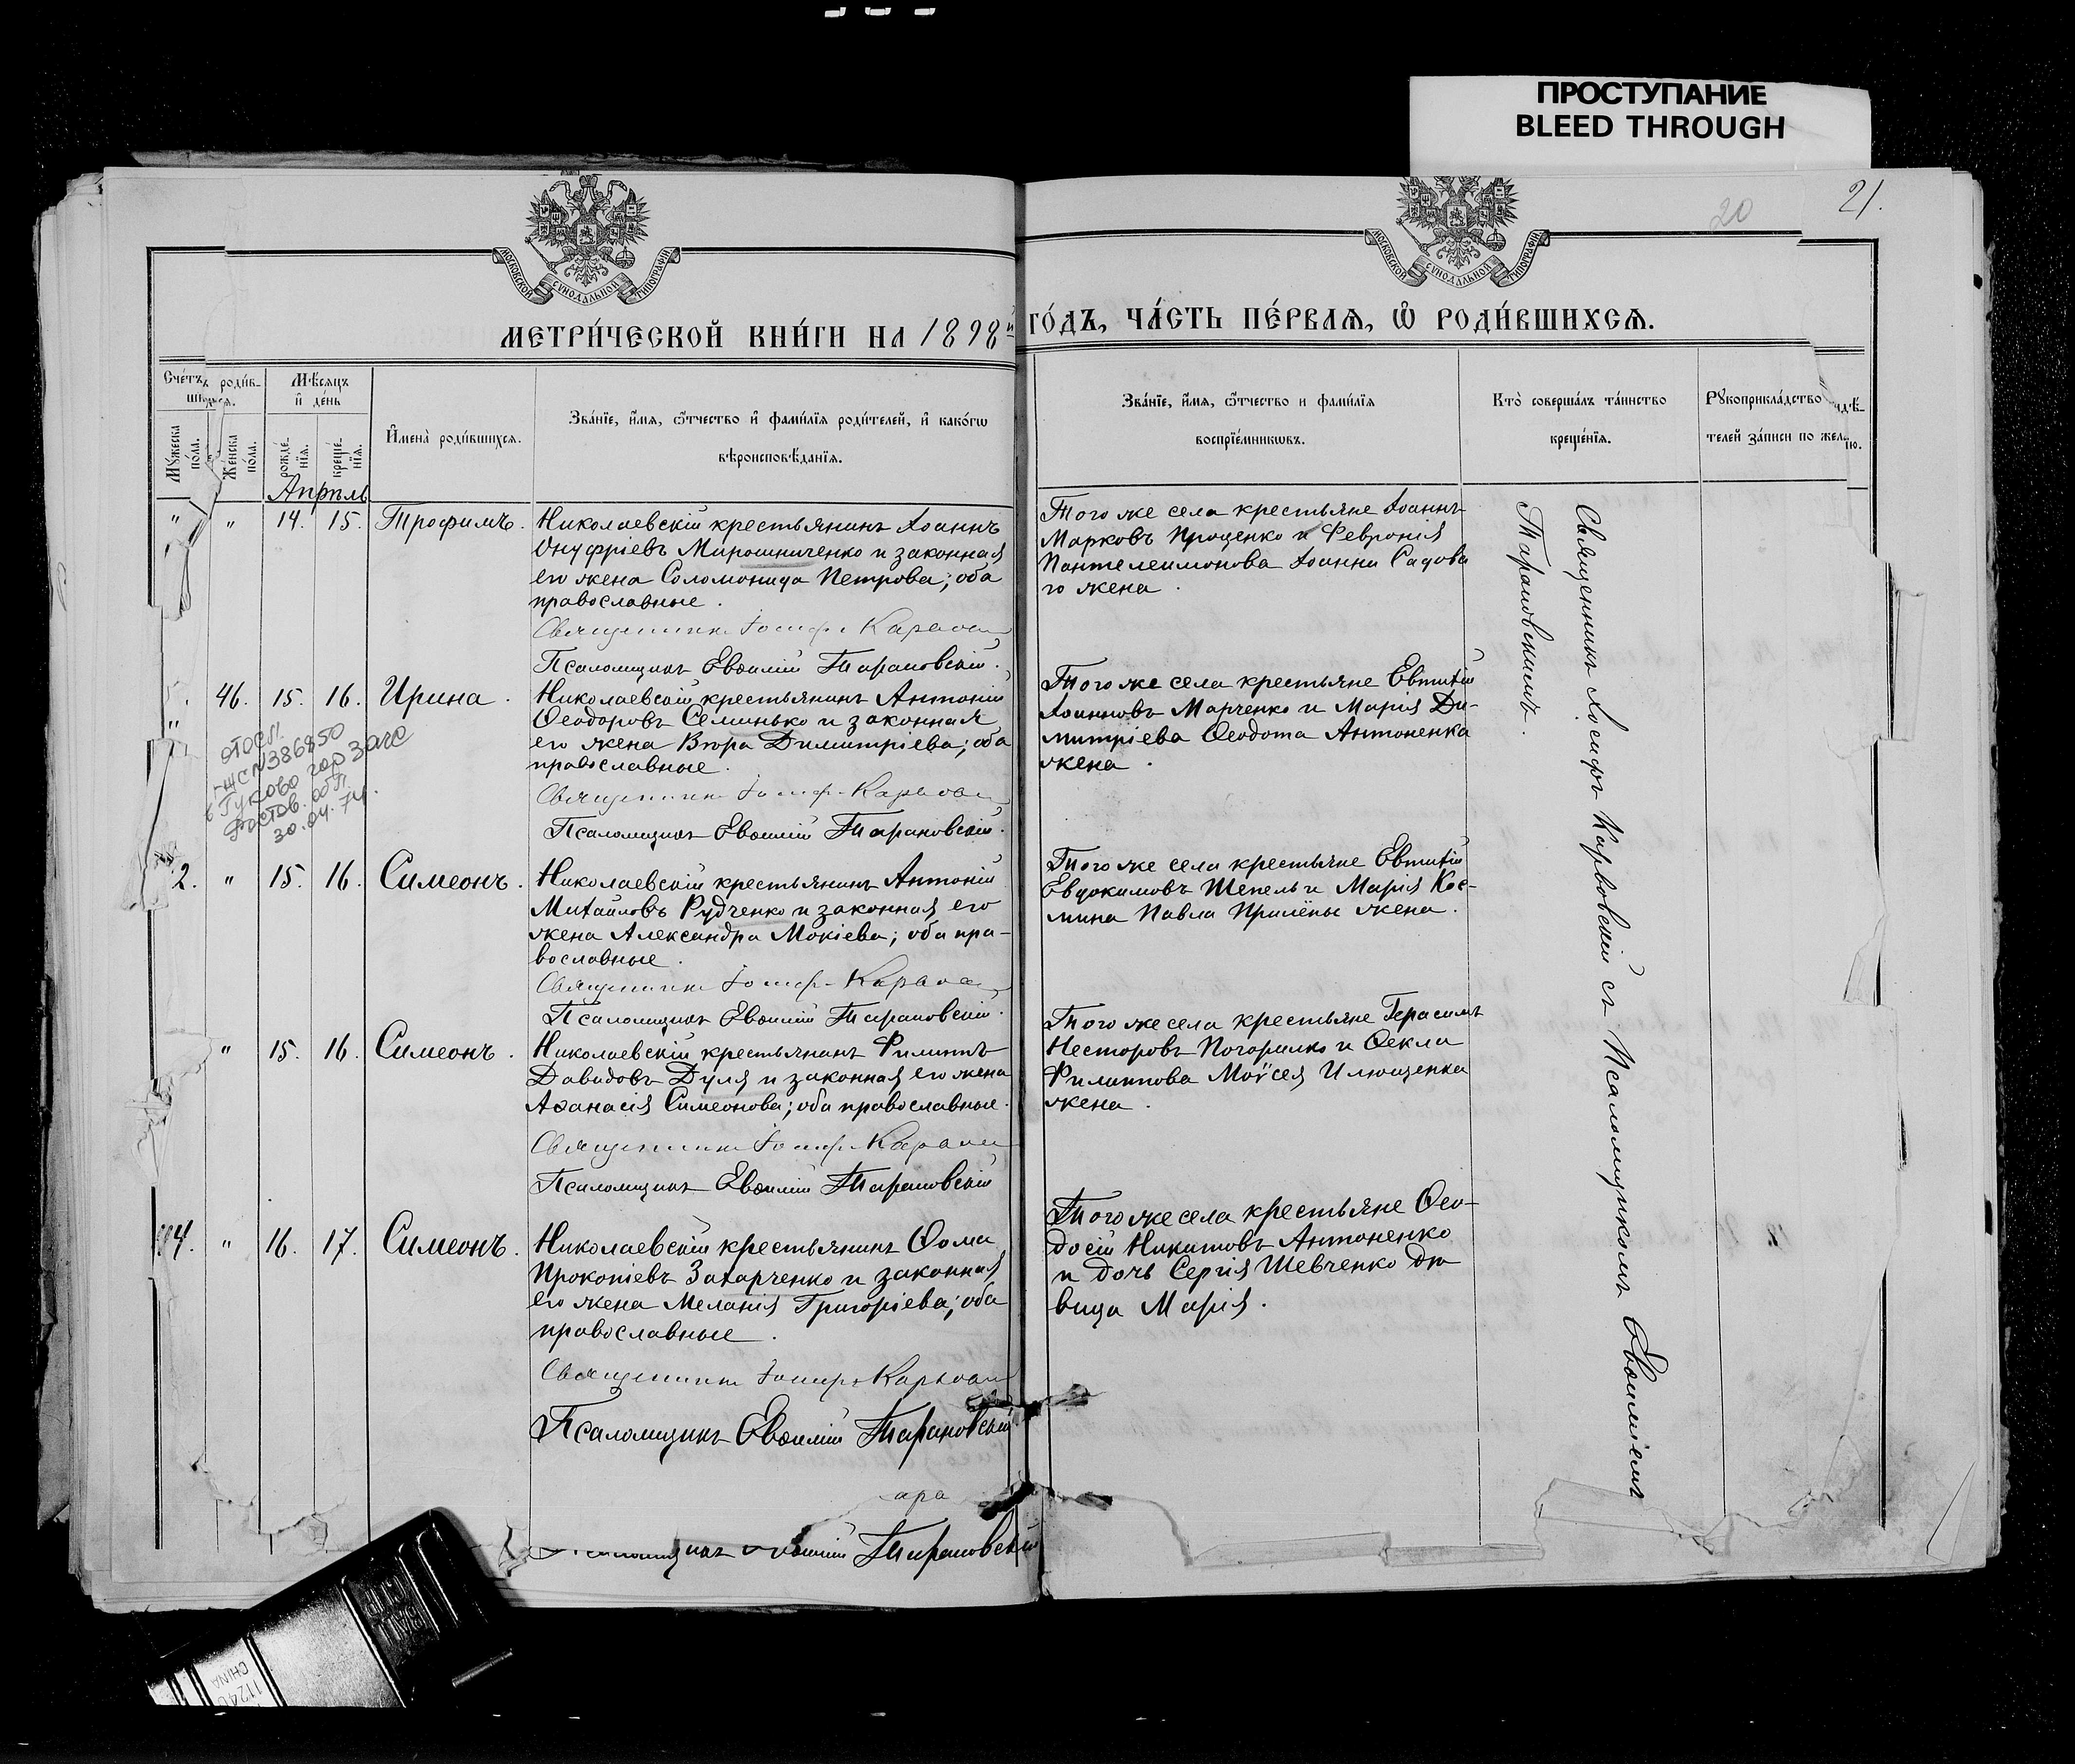 ПРОСТУПАНИЕ
BLEED THROUGH
20
21.
МОСКОВСКОЙ СѴНОДАЛЬНОЙ ТИПОГРАФІИ
МОСКОВСКОЙ СѴНОДАЛЬНОЙ ТИПОГРАФІИ
МЕТРИ́ЧЕСКОЙ КНИ́ГИ НА 1898й ГО́ДЪ, ЧА́СТЬ ПЕ́РВАѦ, Ѽ РОДИ́ВШИХСѦ.
Сче́тъ роди́в-
шихсѧ.
Мѣ́сѧцъ
и҆ де́нь
Му́жеска
по́ла.
Же́нска
по́ла.
рожде́-
нїѧ.
креще́-
нїѧ.
И҆мена̀ роди́вшихсѧ.
Зва́нїе, и҆́мѧ, ѻ҆́тчество и҆ фами́лїѧ роди́телей, и҆ како́гѡ
вѣроисповѣ́данїѧ.
Зва́нїе, и҆́мѧ, ѻ҆́тчество и фами́лїѧ
воспрїе́мникѡвъ.
Кто̀ соверша́лъ та́инство
креще́нїѧ.
Рꙋкоприкла́дство
телей за́писи по
Апрѣль
" " 14. 15. Трофимъ.
Николаевскій крестьянинъ Іоаннъ
Онуфріевъ Мирошниченко и законная
его жена Соломонида Петрова; оба
православные.
Священникъ Іосифъ
Псаломщикъ Евѳимій Тарановскій.
Того же села крестьяне Іоаннъ
Марковъ Проценко и Февронія
Пантелеимонова Іоанна Садова
го жена.
46. 15. 16. Ирина.
Николаевскій крестьянинъ Антоній
Ѳеодоровъ Семинько и законная
его жена Вѣра Димитріева; оба
православные.
Священникъ Іосифъ
Псаломщикъ Евѳимій Тарановскій.
Того же села крестьяне Евтихій
Іоанновъ Марченко и Марія Ди-
митріева Ѳеодота Антоненка
жена.
N386850
Гуково гор загс
Ростов. обл
30.04.74.
2. " 15. 16. Симеонъ.
Николаевскій крестьянинъ Антоній
Михайловъ Рудченко и законная его
жена Александра Мокіева; оба пра-
вославные.
Священникъ Іосифъ
Псаломщикъ Евѳимій Тарановскій.
Того же села крестьяне Евтихій
Евдокимовъ Шепель и Марія Кос-
мина Павла Прилёпы жена.
" 15. 16. Симеонъ.
Николаевскій крестьянинъ Филиппъ
Давидовъ Дуля и законная его жена
Аѳанасія Симеонова; оба православные.
Священникъ Іосифъ
Псаломщикъ Евѳимій Тарановскій
Того же села крестьяне Герасимъ
Несторовъ Погорилко и Ѳекла
Филиппова Моѵсея Илющенка
жена.
4. " 16. 17. Симеонъ.
Николаевскій крестьянинъ Ѳома
Прокопіевъ Захарченко и законная
его жена Меланія Григоріева; оба
православные.
Священникъ Іосифъ
Псаломщикъ Евѳимій Тарановскій
Того же села крестьяне Ѳео-
досій Никитовъ Антоненко
и дочь Сергія Шевченко дѣ
вица Марія.
Священникъ Іосифъ Карповскій съ Псаломщикомъ Евѳиміемъ
Тарановскимъ.
ара
Тарановскій
CHINA